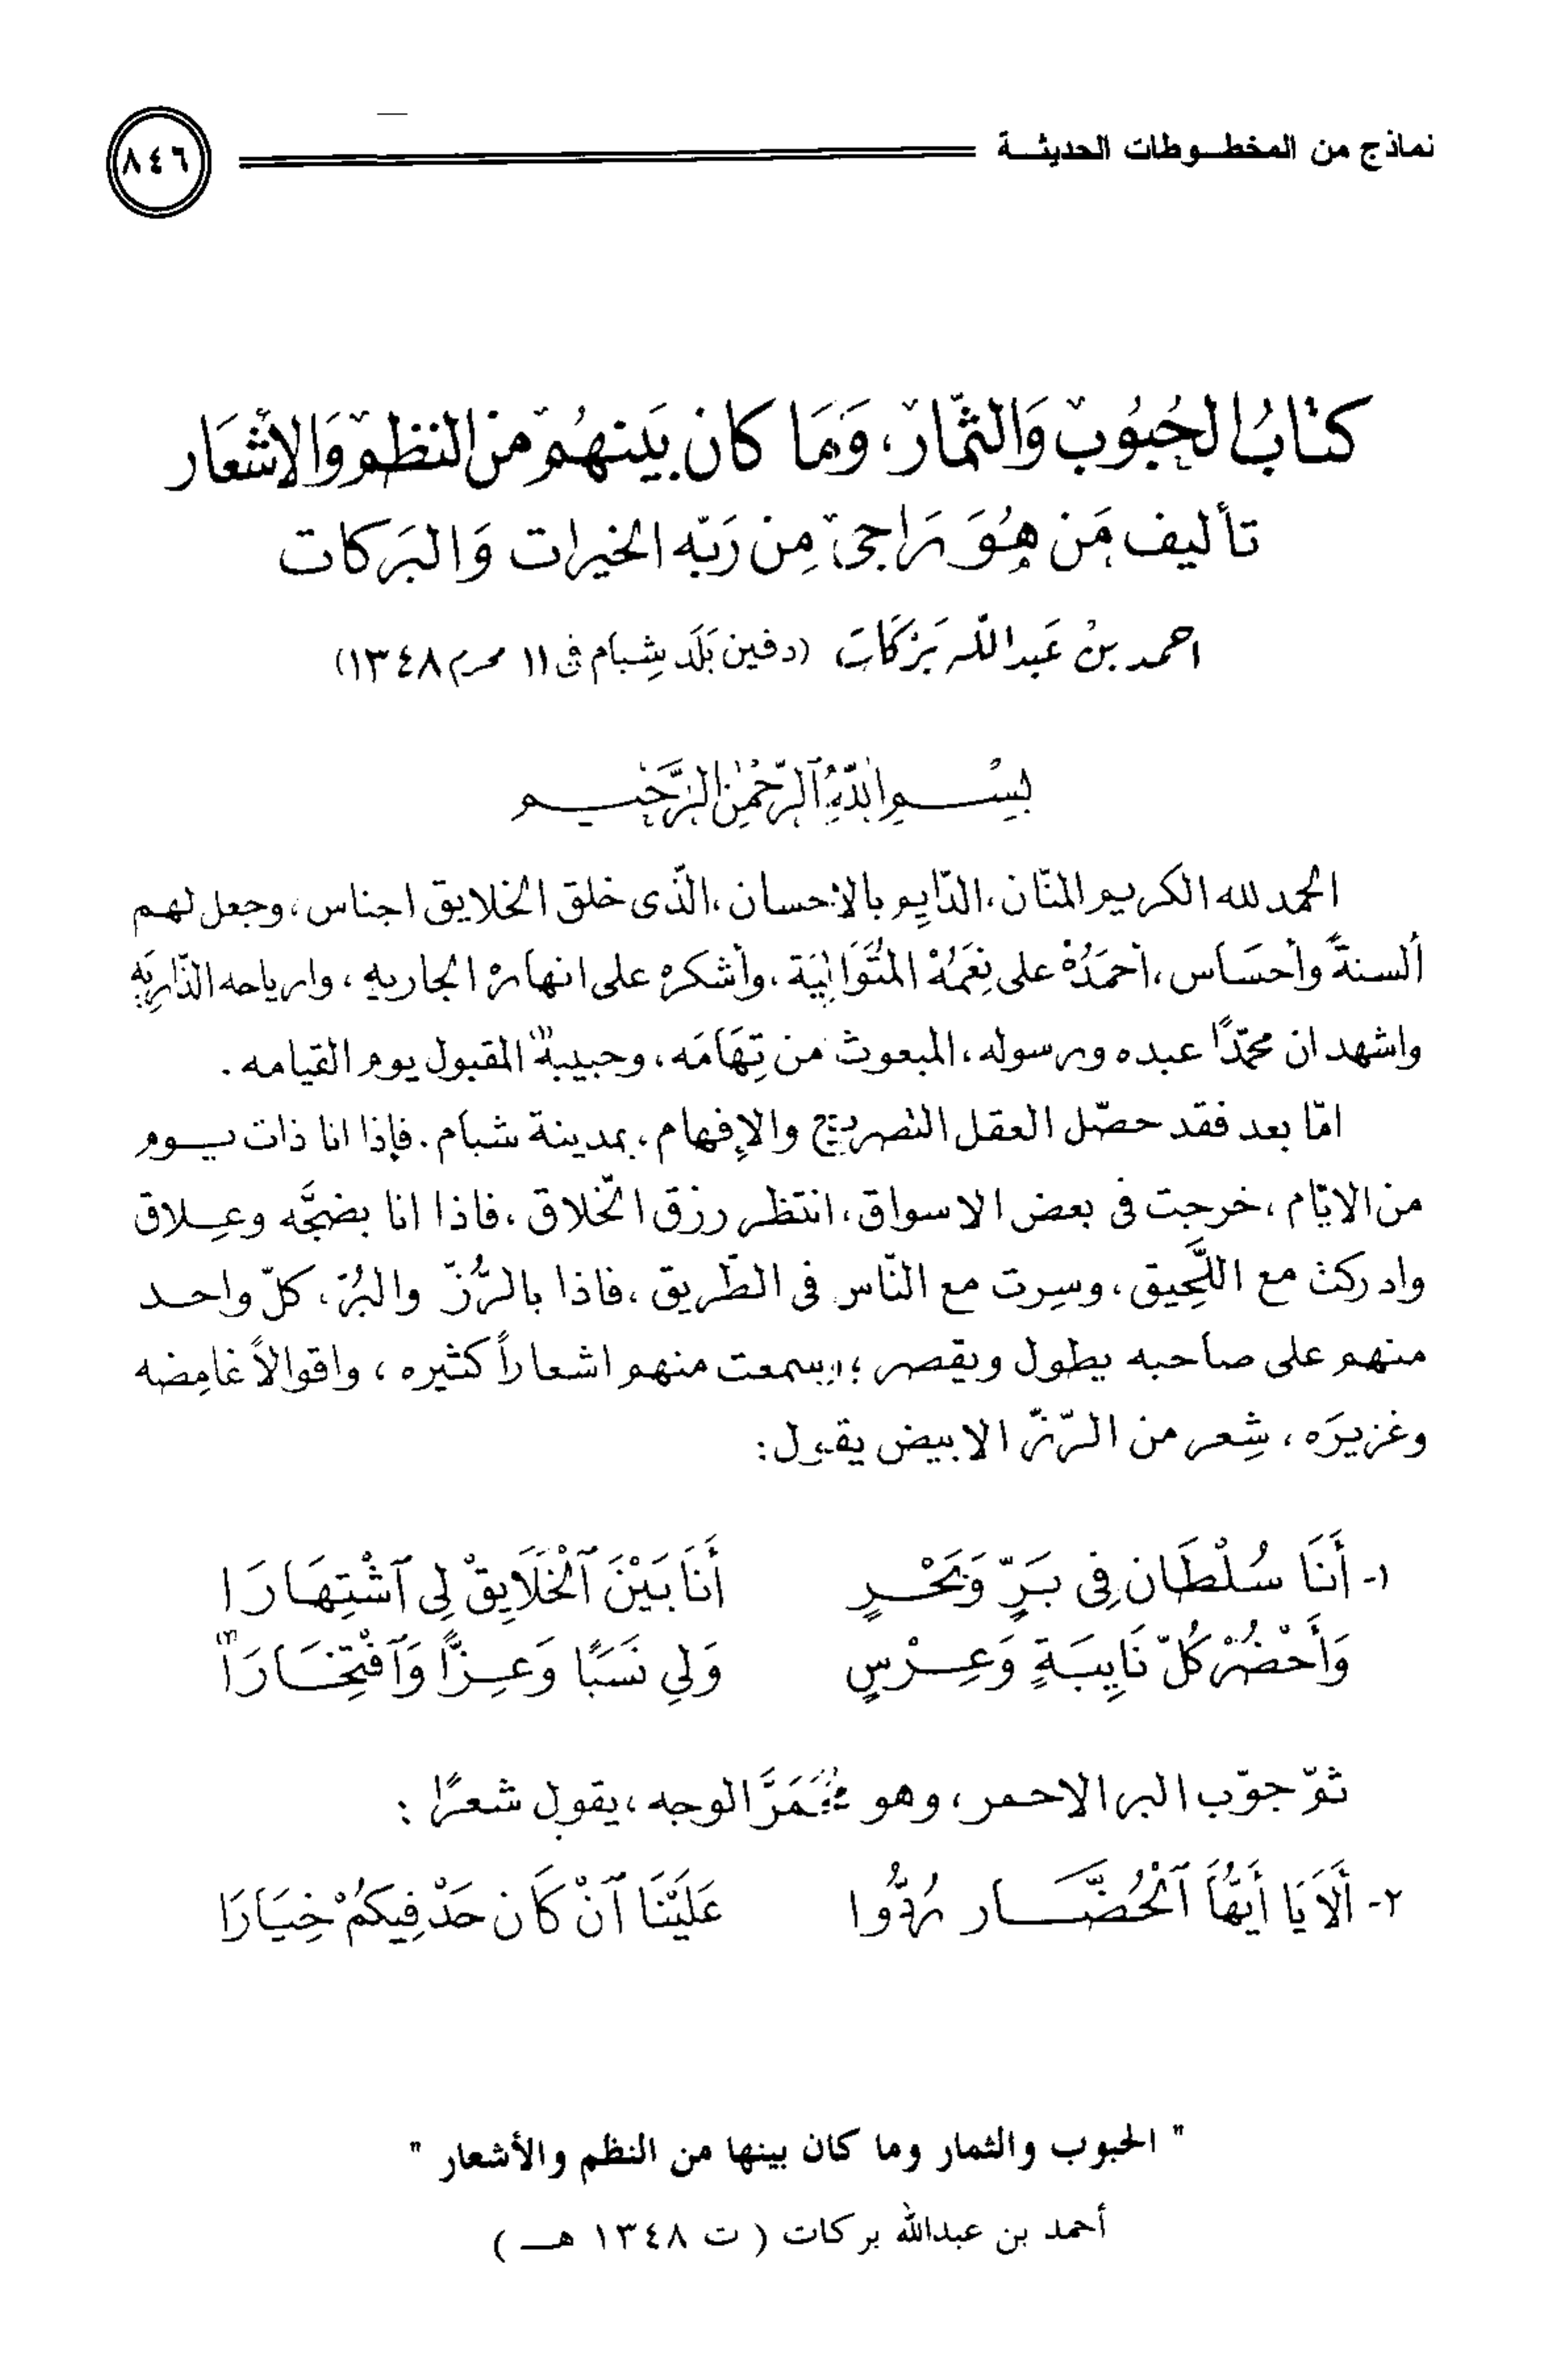 نماذج من المخطوطات الحديثة
٨٤٦
كتابُ الحُبُوب وَالثّمار، وَمَا كان بَينهُم من النظم وَالاشْعَار
تأليف مَن هُوَ رَاجى مِن رَبّه الخيرات وَالبَركات
احمد بنْ عَبد اللّه بَرَكَاتَ (دفين بَلَد شِبَام فى ١١ محرم ١٣٤٨)
بِسْمِ اللَّهِ الرَّحْمٰنِ الرَّحِيم
الحمد لله الكريم المنّان، الدّايِم بالإحسان، الذّى خلق الخلايق اجناس، وجعل لهم
ألسنةً وأحسَاس، أحمَدُهْ على نِعَمُهْ المتُوَالِيَة، وأشكره على انهاره الجاريه، وارياحه الذّاريَه
واشهد ان محمّدًا عبده ورسوله، المبعوث من تِهَامَه، وحبيبهُ(١) المقبول يوم القيامه.
امّا بعد فقد حصّل العقل التصريح والإفهام، بمدينة شبام. فإذا انا ذات يوم
من الايّام، خرجت فى بعض الاسواق، انتظر رزق الخّلاق، فاذا انا بضجَّه وعِلاق
وادركت مع اللَّحِيق، وسِرت مع النّاس فى الطّريق، فاذا بالرُّزّ والبُرّ، كلّ واحد
منهم على صاحبه يطول ويقصر؛ وسمعت منهم اشعاراً كثيره، واقوالاً غامِضه
وغزيرَه، شِعر من الرّزّ الابيض يقول:
١- أَنَا سُلْطَان فِى بَرٍّ وَبَحْرٍ أَنَا بَيْنَ ٱلْخَلَايِقْ لِى ٱشْتِهَارَا
وَأَحْضُرْ كُلّ نَايِبَةٍ وَعِرْسٍ وَلِي نَسَبًا وَعِزًّا وَٱفْتِخَارَا(٢)
ثمّ جوّب البر الاحمر، وهو الوجه، يقول شعرًا:
٢- أَلَا يَا أَيُّهَا ٱلْحُضَّار رُدُّوا عَلَيْنَا ٱنْ كَان حَدْ فِيكُمْ خِيَارَا
" الحبوب والثمار وما كان بينها من النظم والأشعار "
أحمد بن عبدالله بركات ( ت ١٣٤٨ هـ )